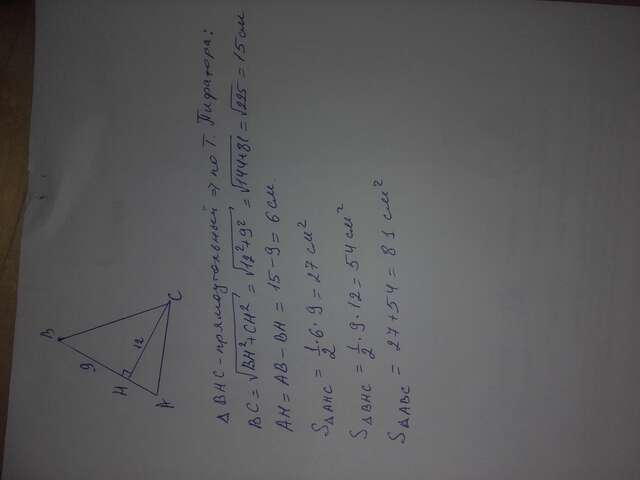 B
9
H
12
A
C
△BHC - прямоугольный ⇒ по Т. Пифагора:
BC = √BH²+CH² = √12²+9² = √144+81 = √225 = 15 см
AH = AB - BH = 15 - 9 = 6 см.
S△AHC = 1/2 · 6 · 9 = 27 см²
S△BHC = 1/2 · 9 · 12 = 54 см²
S△ABC = 27 + 54 = 81 см²